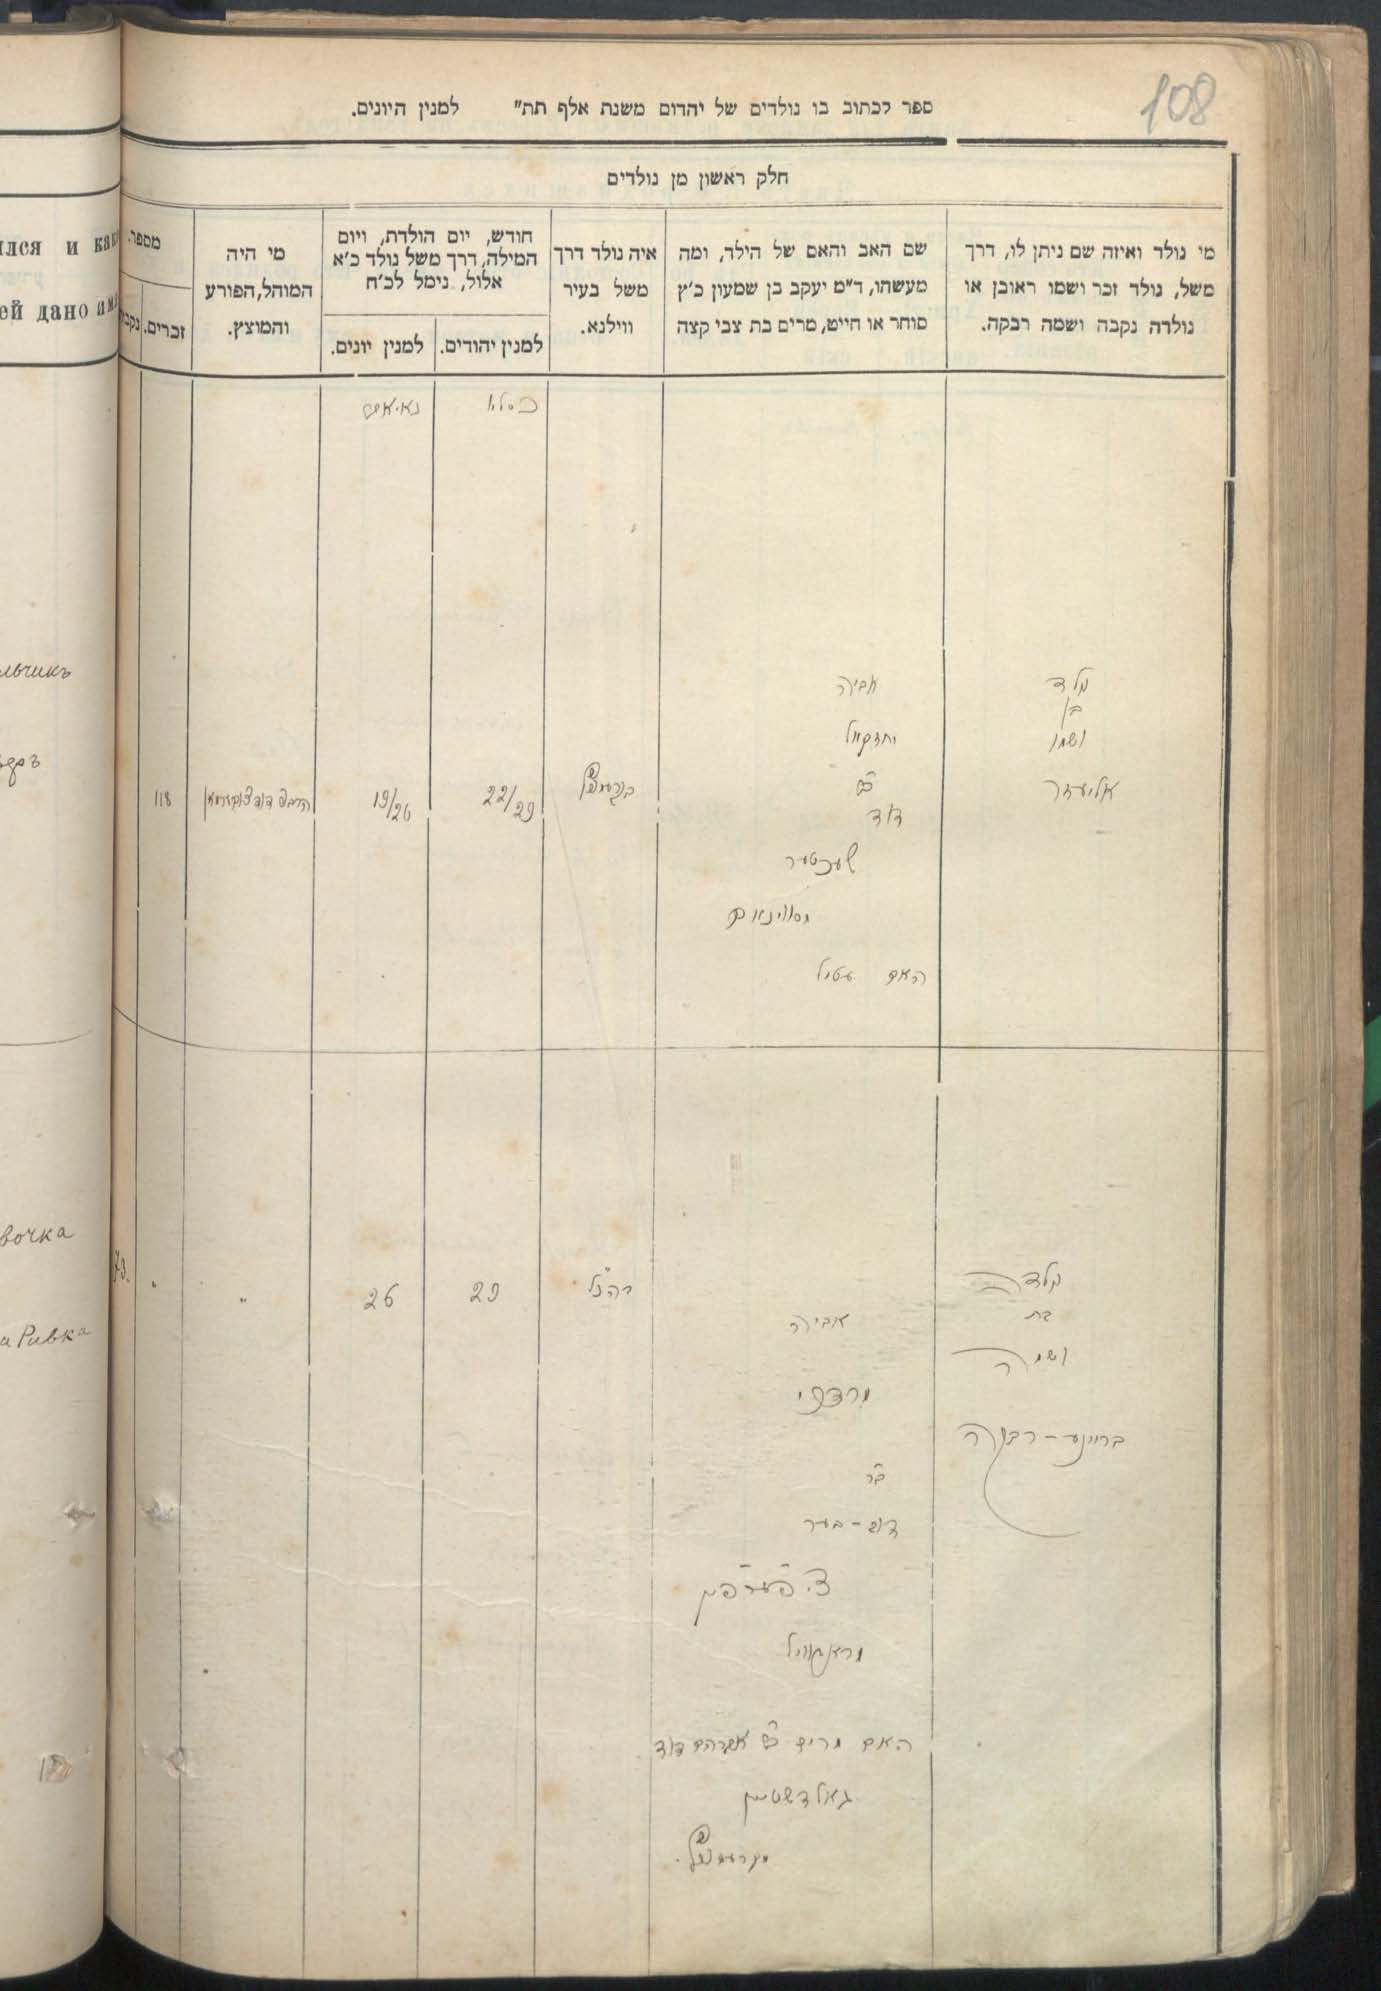 108
ספר לכתוב בו נולדים של יהדום משנת אלף תת״ למנין היונים.
חלק ראשון מן נולדים
מי נולד ואיזה שם ניתן לו, דרך
משל, נולד זכר ושמו ראובן או
נולדה נקבה ושמה רבקה.
שם האב והאם של הילד, ומה
מעשהו, ד״מ יעקב בן שמעון כ״ץ
סוחר או חייט, מרים בת צבי קצה
איה נולד דרך
משל בעיר
ווילנא.
חודש, יום הולדת, ויום
המילה, דרך משל נולד כ״א
אלול, נימל לכ״ח
למנין יהודים.
למנין יונים.
מי היה
המוהל, הפורע
והמוצץ.
מספר.
זכרים.
נקב
כסלו
נאיאבר
נולד
בן
ושמו
אליעזר
אביה
יחזקאל
ב״ר
דוד
שעכטער
האם
22/29
19/26
118
נולדה
בת
ושמה
בריינע-רבקה
אביה
מרדכי
ב״ר
דוב-בער
האם מרים ב״ר אברהם דוד
גאלדשטיין
כהנ״ל
29
26
"
"
73.
ился и как
ей дано има
льчикъ
вочка
а Ривка